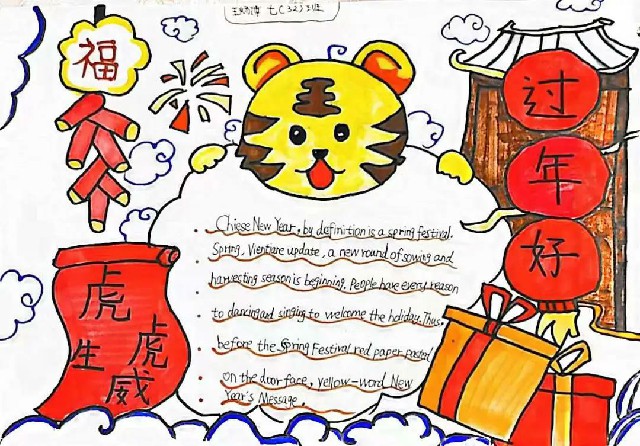 七(32)班
福
过
年
好
Chiese New Year, by definition is a spring festival.
Spring, Vientiare update, a new round of sowing and
harvesting season is beginning. People have every reason
to dancing and singing to welcome the holiday. Thus.
before the Spring Festival red paper pasted
on the door face, yellow-word New
Year's Message.
虎
虎
生
威